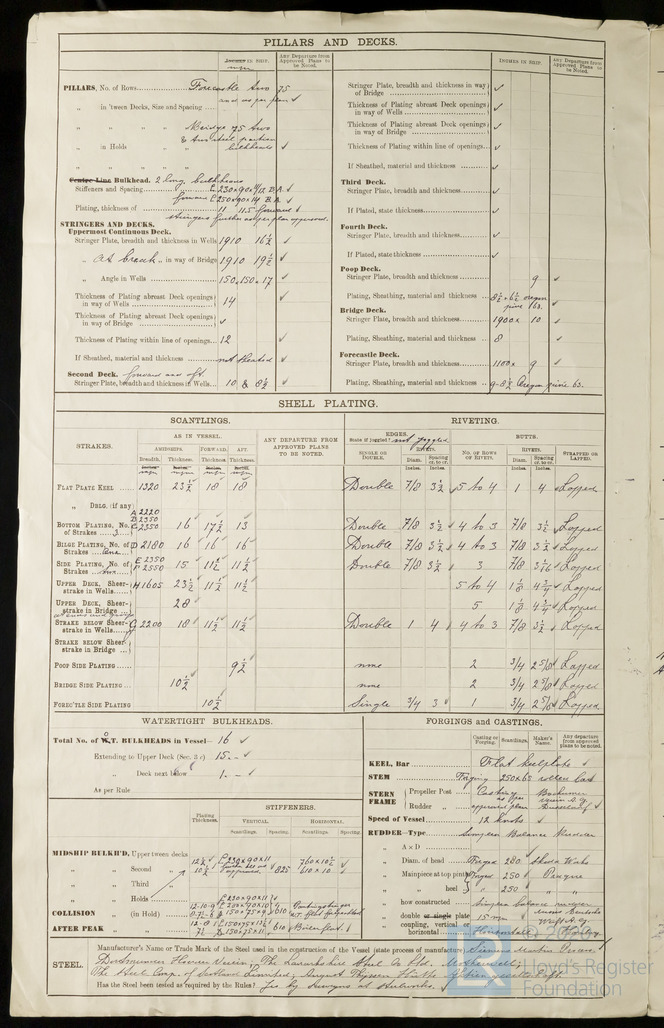 PILLARS AND DECKS.
INCHES IN SHIP.
Any Departure from Approved Plans to be Noted.
PILLARS, No. of Rows Forecastle two 75
and as per plan ✓
„ in 'tween Decks, Size and Spacing
„ „ „ „ Bridge 75 two
„ in Holds „ „ bulkheads ✓
Centre Line Bulkhead. 2 long. bulkheads
Stiffeners and Spacing 230×90× B.A. ✓
forward 250×90×14 B.A. ✓
Plating, thickness of 11 11.5 forward ✓
stringers further as per plan approved.
STRINGERS AND DECKS.
Uppermost Continuous Deck.
Stringer Plate, breadth and thickness in Wells 1910 16½ ✓
„ At break „ in way of Bridge 1910 19½ ✓
„ Angle in Wells 150×150×17 ✓
Thickness of Plating abreast Deck openings in way of Wells 14 ✓
Thickness of Plating abreast Deck openings in way of Bridge ✓
Thickness of Plating within line of openings 12 ✓
If Sheathed, material and thickness not sheathed ✓
Second Deck. forward and aft.
Stringer Plate, breadth and thickness in Wells 10 & 8½ ✓
INCHES IN SHIP.
Any Departure from Approved Plans to be Noted.
Stringer Plate, breadth and thickness in way of Bridge ✓
Thickness of Plating abreast Deck openings in way of Wells ✓
Thickness of Plating abreast Deck openings in way of Bridge ✓
Thickness of Plating within line of openings ✓
If Sheathed, material and thickness ✓
Third Deck.
Stringer Plate, breadth and thickness ✓
If Plated, state thickness ✓
Fourth Deck.
Stringer Plate, breadth and thickness ✓
If Plated, state thickness ✓
Poop Deck.
Stringer Plate, breadth and thickness 9 ✓
Plating, Sheathing, material and thickness 8½ × 6½ oregon pine 63. ✓
Bridge Deck.
Stringer Plate, breadth and thickness 1900 × 10 ✓
Plating, Sheathing, material and thickness 8 ✓
Forecastle Deck.
Stringer Plate, breadth and thickness 1100 × 9 ✓
Plating, Sheathing, material and thickness 9-8½ Oregon pine 63.
SHELL PLATING.
SCANTLINGS.
RIVETING.
STRAKES.
AS IN VESSEL.
AMIDSHIPS. FORWARD. AFT.
Breadth. Thickness. Thickness. Thickness.
ANY DEPARTURE FROM APPROVED PLANS TO BE NOTED.
EDGES.
State if joggled? not joggled
SINGLE OR DOUBLE.
RIVETS.
Diam. Spacing cr. to cr.
BUTTS.
NO. OF ROWS OF RIVETS.
RIVETS.
Diam. Spacing cr. to cr.
STRAPPED OR LAPPED.
FLAT PLATE KEEL 1320 23½ 18 18 Double 7/8 3½ 5 to 4 1 4 Lapped
„ DBLG. (if any)
A 2220
B 2350
BOTTOM PLATING, No. of Strakes 3 C 2350 16 17½ 13 Double 7/8 3½ 4 to 3 7/8 3½ Lapped
BILGE PLATING, No. of Strakes One D 2180 16 16 16 Double 7/8 3½ 4 to 3 7/8 3½ Lapped
SIDE PLATING, No. of Strakes two E 2350 F 2550 15 11½ 11½ Double 7/8 3½ 3 7/8 Lapped
UPPER DECK, Sheerstrake in Wells H 1605 23½ 11½ 11½ 5 to 4 1⅛ Lapped
UPPER DECK, Sheerstrake in Bridge 28 5 1⅛ Lapped
STRAKE BELOW SHEERstrake in Wells G 2200 18 11½ 11½ Double 1 4 4 to 3 7/8 3½ Lapped
STRAKE BELOW SHEERstrake in Bridge
POOP SIDE PLATING 9½ none 2 3/4 2 5/8 Lapped
BRIDGE SIDE PLATING 10½ none 2 3/4 2 5/8 Lapped
FOREC'TLE SIDE PLATING 10½ Single 3/4 3 1 3/4 2 5/8 Lapped
WATERTIGHT BULKHEADS.
Total No. of W.T. BULKHEADS in Vessel 16 ✓
Extending to Upper Deck (Sec. 3 c) 15. ✓
„ Deck next below 1. ✓
As per Rule
STIFFENERS.
Plating Thickness.
VERTICAL. HORIZONTAL.
Scantlings. Spacing. Scantlings. Spacing.
MIDSHIP BULKH'D, Upper tween decks
„ „ Second „
„ „ Third „
„ „ Holds
COLLISION „ (in Hold)
AFTER PEAK „ „
FORGINGS and CASTINGS.
Casting or Forging. Scantlings. Maker's Name. Any departure from approved plans to be noted.
KEEL, Bar Flat keelplate ✓
STEM Forging 250×63 rolled bar
STERN FRAME { Propeller Post Casting as per approved plan Bochumer Verein A.G.
Rudder „
Speed of Vessel 12 knots ✓
RUDDER—Type Simplex Balance Rudder
„ A × D
„ Diam. of head Forged 280 Skoda Works
„ Mainpiece at top pintle Forged 250 Prague
„ „ heel „ 250 „ „
„ how constructed simplex balance rudder
„ double or single plate 15 mm
„ coupling, vertical or horizontal Horizontal Hamburg
STEEL.
Manufacturer's Name or Trade Mark of the Steel used in the construction of the vessel (state process of manufacture) Siemens Martin Process
Dortmunder Hoerder Verein, The Lanarkshire Steel Co Ltd. Motherwell,
The Steel Comp. of Scotland Limited, August Thyssen Hütte
Has the Steel been tested as required by the Rules? Yes by Surveyors at Steelworks.
© 2020
LR
Lloyd's Register
Foundation